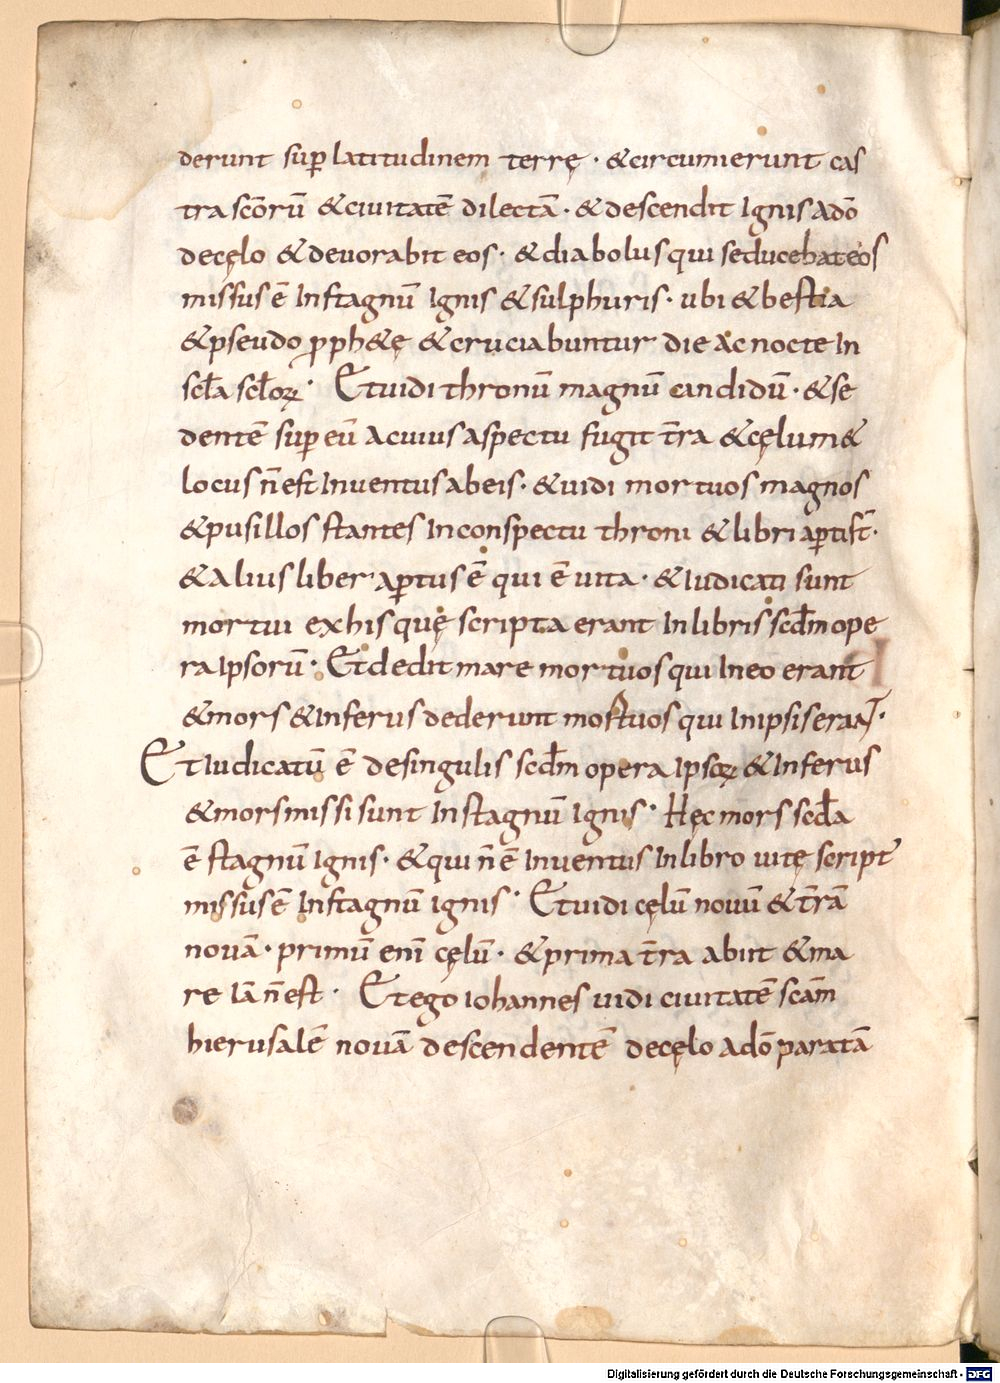 derunt sup̄ latitudinem terrę · & circumierunt cas
tra sc̄orū & ciuitatē dilectā · & descendit Ignis ad̄o
decęlo & deuorabit eos · & diabolus qui seducebat eos
missus ē In stagnū Ignis & sulphuris · ubi & bestia
& pseudo pꝓh&ę & cruciabuntur die Ac nocte In
sc̄la sc̄loꝝ · Et uidi thronū magnū candidū · & se
dentē sup eū Acuius aspectu fugit t̄ra & cęlum &
locus n̄ est Inuentus abeis · & uidi mortuos magnos
& pusillos stantes Inconspectu throni & libri aꝑti s̄t ·
& Alius liber aꝑtus ē qui ē uita · & Iudicati sunt
mortui ex his quę scripta erant In libris scd̄m ope
ra Ipsorū · Et dedit mare mortuos qui Ineo erant
& mors & Inferus dederunt mortuos qui Inipsis erant ·
Et Iudicatū ē desingulis scd̄m opera Ipsoꝝ & Inferus
& mors missi sunt In stagnū Ignis · Hęc mors scd̄a
ē stagnū Ignis · & qui n̄ ē Inuentus Inlibro uitę script᷒
missus ē In stagnū ignis · Et uidi cęlū nouū & t̄rā
nouā · primū eni̅ cęlū · & prima t̄ra abiit & ma
re Iā n̄ est · Et ego iohannes uidi ciuitatē sc̄am
hierusalē nouā descendentē decęlo ad̄o paratā
Digitalisierung gefördert durch die Deutsche Forschungsgemeinschaft - DFG